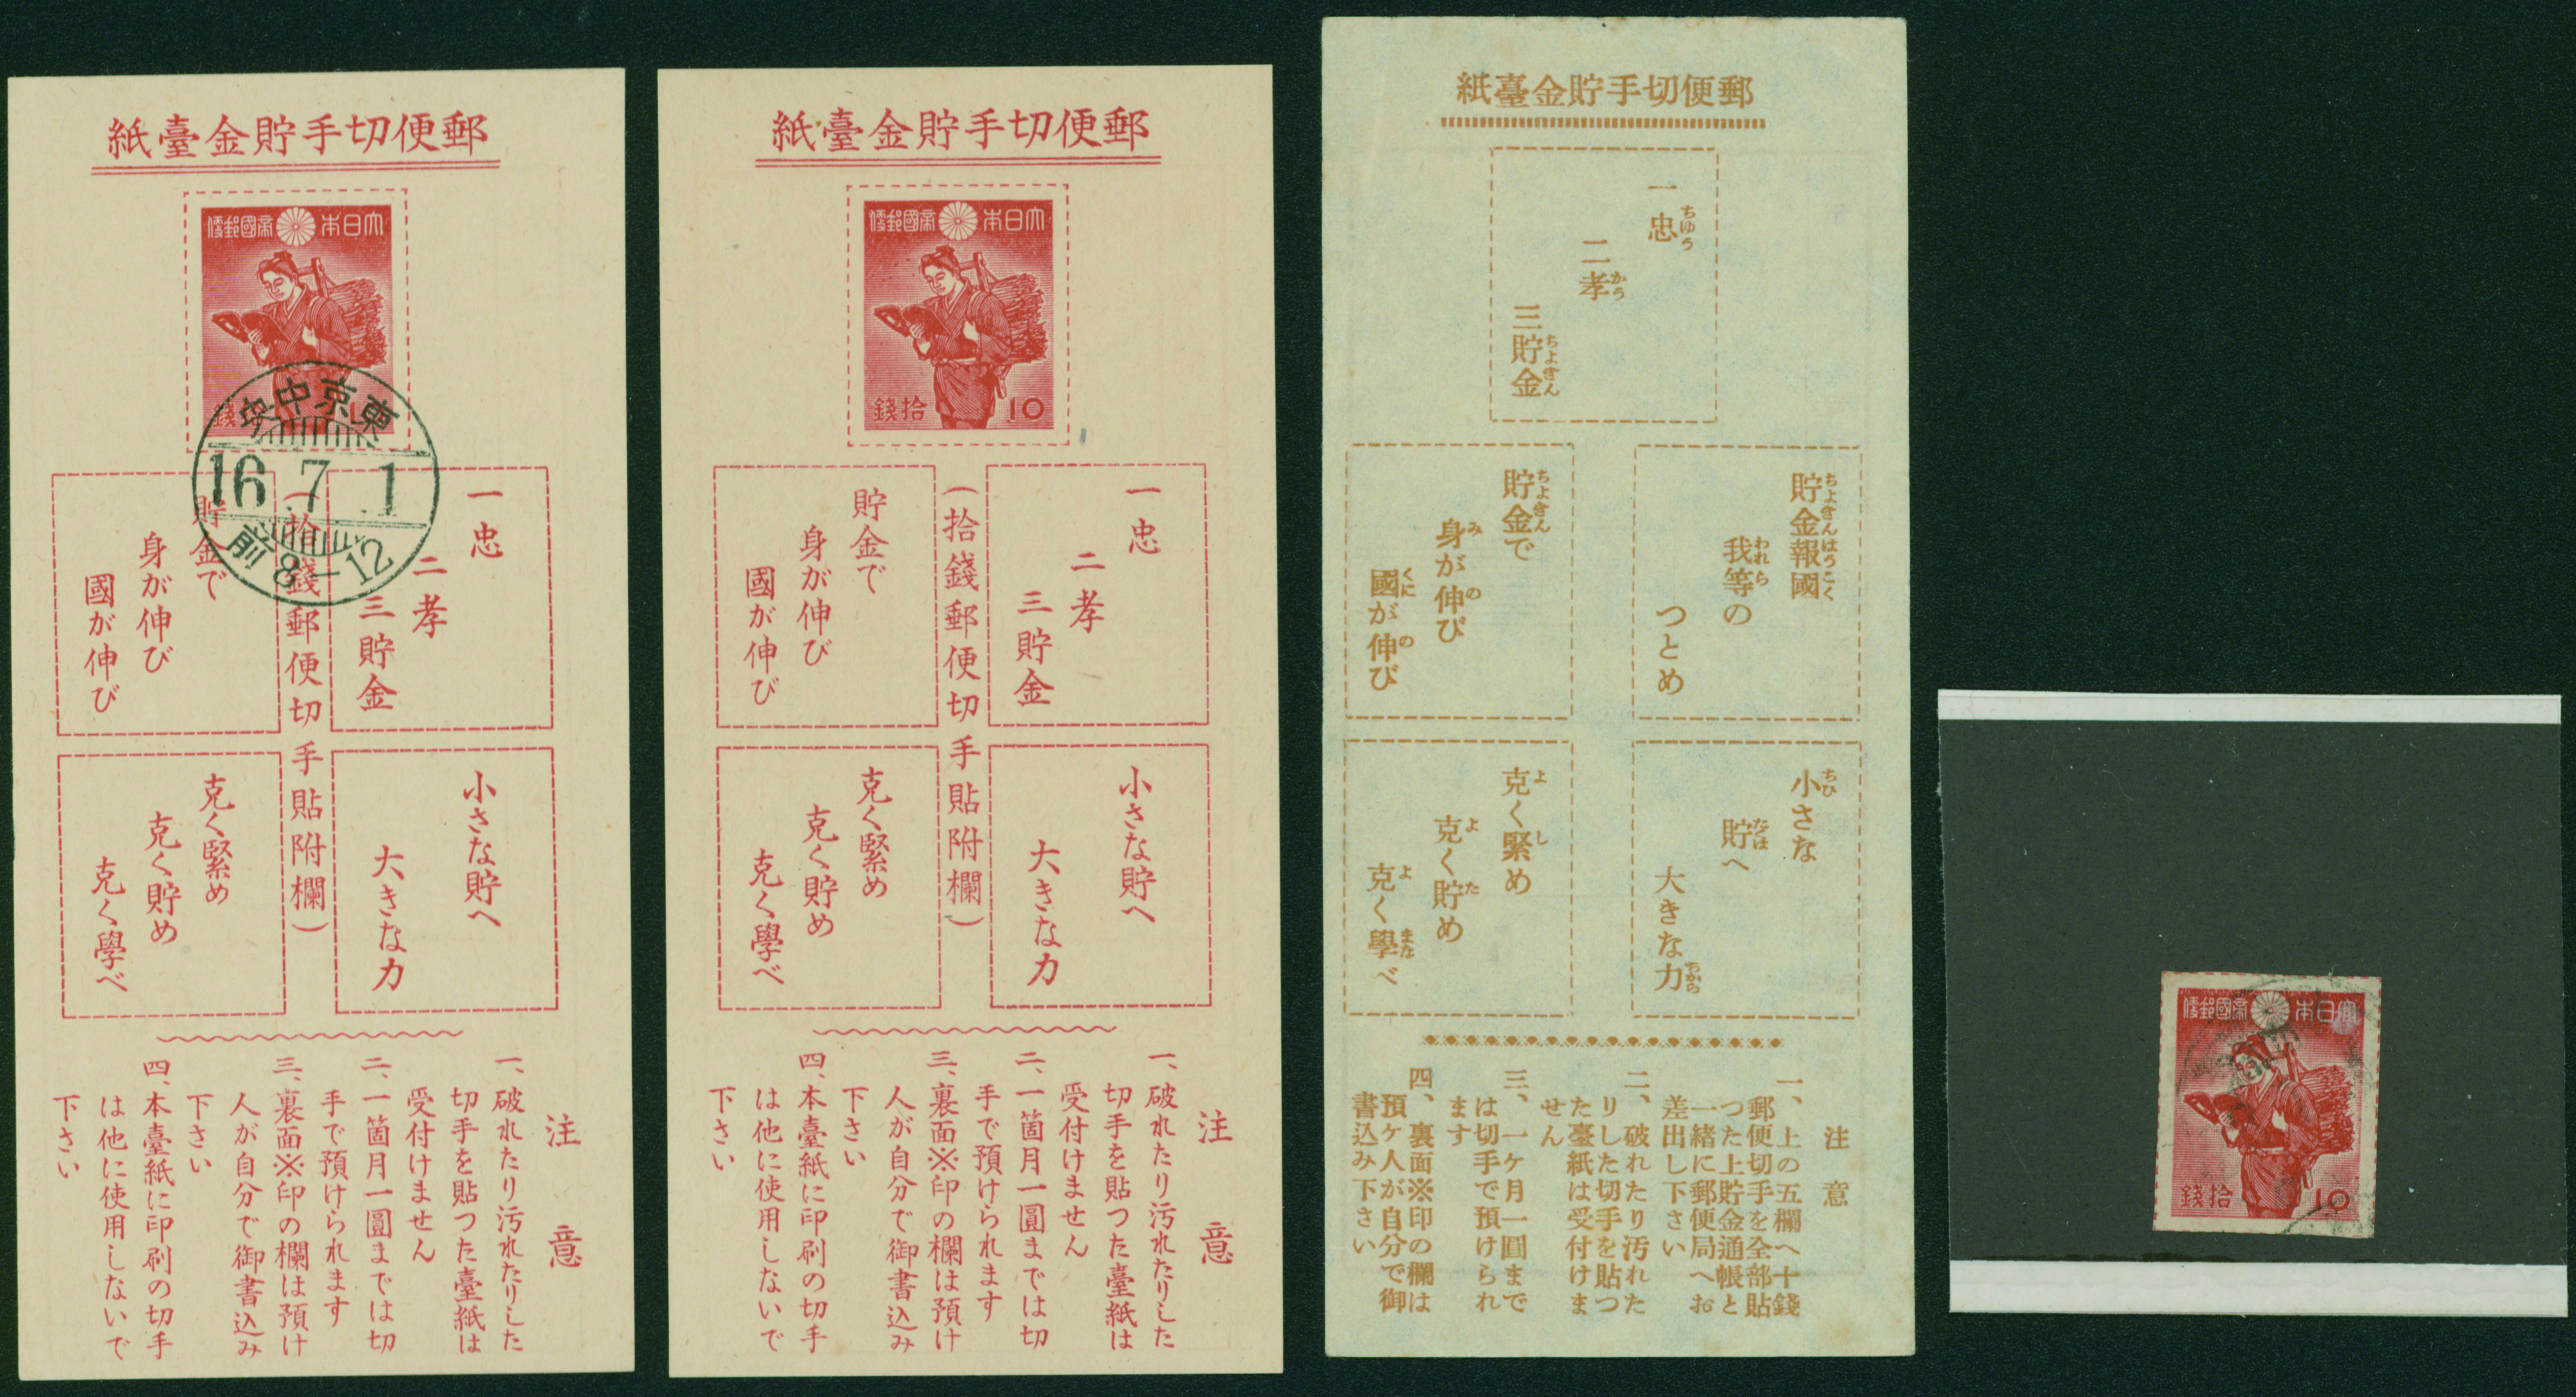 紙臺金貯手切便郵
大日本帝國郵便
東京中央
16.7.1
前8-12
一忠
二孝
三貯金
貯金で
身が伸び
國が伸び
(拾錢郵便切手貼附欄)
小さな貯へ
大きな力
克く緊め
克く貯め
克く學べ
注意
一、破れたり汚れたりした
切手を貼つた臺紙は
受付けません
二、一箇月一圓までは切
手で預けられます
三、裏面※印の欄は預け
人が自分で御書込み
下さい
四、本臺紙に印刷の切手
は他に使用しないで
下さい
紙臺金貯手切便郵
大日本帝國郵便
錢拾 10
一忠
二孝
三貯金
貯金で
身が伸び
國が伸び
(拾錢郵便切手貼附欄)
小さな貯へ
大きな力
克く緊め
克く貯め
克く學べ
注意
一、破れたり汚れたりした
切手を貼つた臺紙は
受付けません
二、一箇月一圓までは切
手で預けられます
三、裏面※印の欄は預け
人が自分で御書込み
下さい
四、本臺紙に印刷の切手
は他に使用しないで
下さい
紙臺金貯手切便郵
一忠ちゆう
二孝かう
三貯金ちよきん
貯金報國ちよきんはうこく
我等のわれら
つとめ
貯金でちよきん
身が伸びみの
國が伸びくにの
小さなちひ
貯へたくは
大きな力ちから
克く緊めよし
克く貯めよた
克く學べよまな
注意
一、上の五欄へ十錢
郵便切手を全部貼
つた上貯金通帳と
一緒に郵便局へお
差出し下さい
二、破れたり汚れた
りした切手を貼つ
た臺紙は受付けま
せん
三、一ケ月一圓まで
は切手で預けられ
ます
四、裏面※印の欄は
預ケ人が自分で御
書込み下さい
大日本帝國郵便
錢拾 10